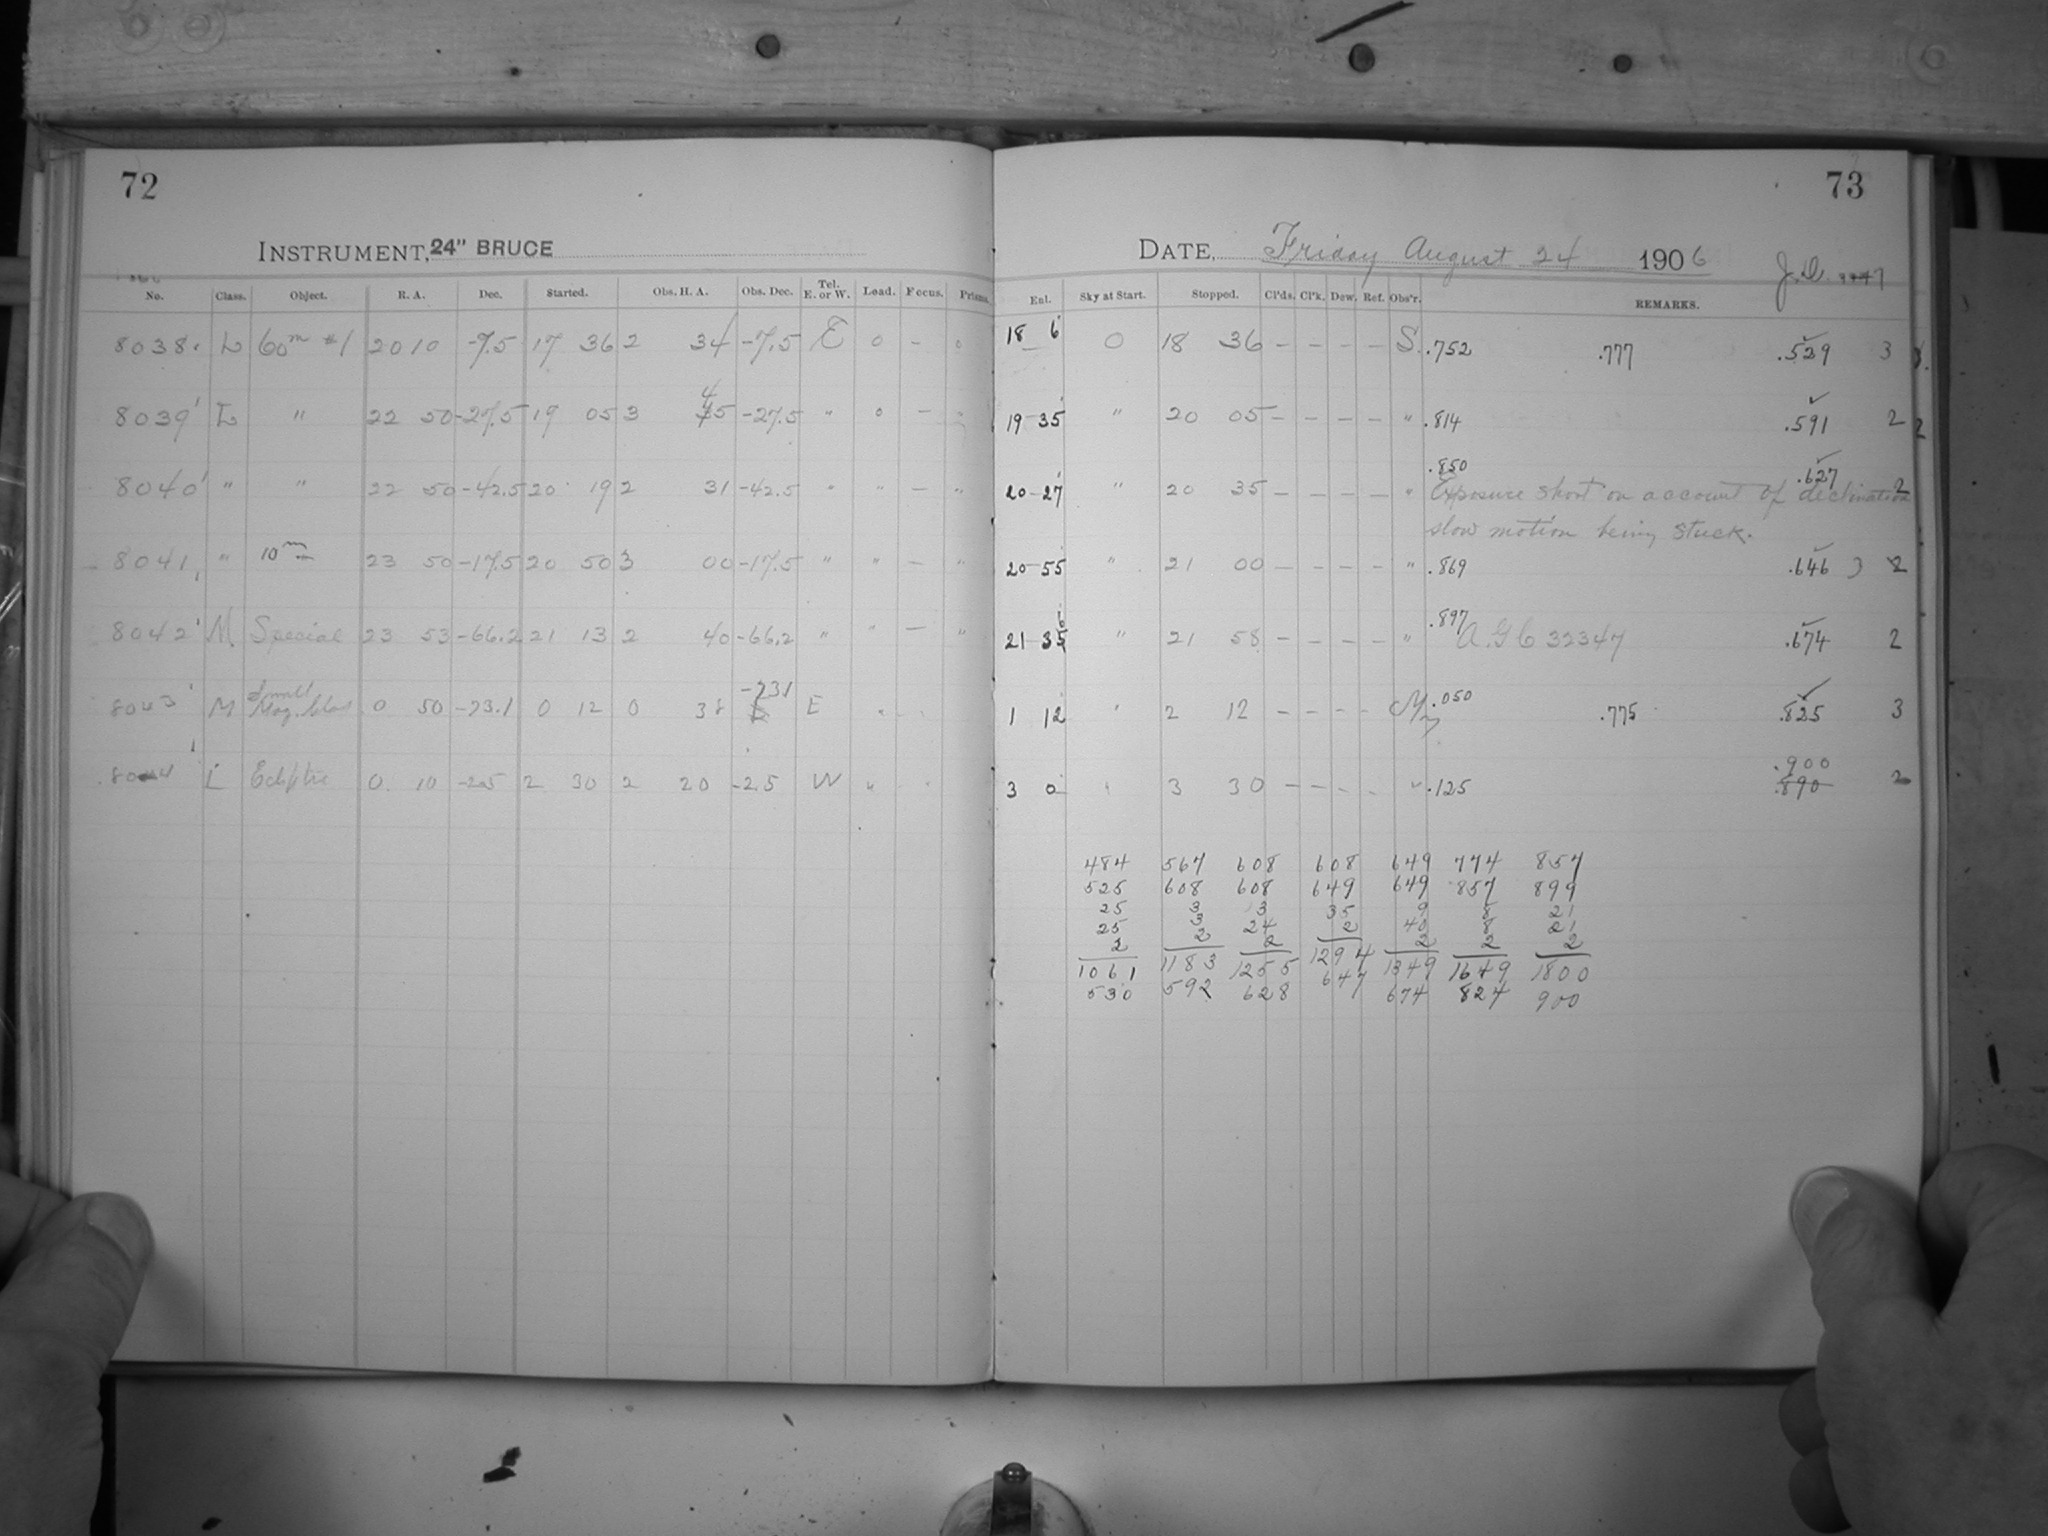 72
73
INSTRUMENT, 24" BRUCE
DATE, Friday August 24 1906
J.D.
No. Class. Object. R. A. Dec. Started. Obs. H. A. Obs. Dec. Tel. E. or W. Load. Focus. Prisms.
Enl. Sky at Start. Stopped. Cl'ds. Cl'k. Dew. Ref. Obs'r. REMARKS.
8038 L 60m #1 20 10 -7.5 17 36 2 34 -7.5 E 0 - 0 18 6 0 18 36 - - - - S. .752 .777 .529 3
8039 L " 22 50 -27.5 19 05 3 45 -27.5 " 0 - " 19 35 " 20 05 - - - - " .814 .591 2 2
8040 " " 22 50 -42.5 20 19 2 31 -42.5 " " - " 20-27 " 20 35 - - - - " .850 .627 2
Exposure short on account of declination
slow motion being stuck.
8041 " 10m 23 50 -17.5 20 50 3 00 -17.5 " " - " 20-55 " 21 00 - - - - " .869 .646 3 2
8042 M Special 23 53 -66.2 21 13 2 40 -66.2 " " - " 21 36 " 21 58 - - - - " .897 A.G.C 32347 .674 2
8043 M Small Mag. Clou 0 50 -73.1 0 12 0 38 -731 E " 1 12 " 2 12 - - - - M .050 .775 .825 3
8044 L Ecliptic 0 10 -2.5 2 30 2 20 -2.5 W " 3 0 " 3 30 - - - - " .125 .900 .890 2
484 567 608 608 649 774 857
525 608 608 649 649 857 899
25 3 13 35 9 8 21
25 3 24 2 40 8 21
2 2 2 2 2 2
1061 1183 1255 1294 1349 1649 1800
530 592 628 647 674 824 900